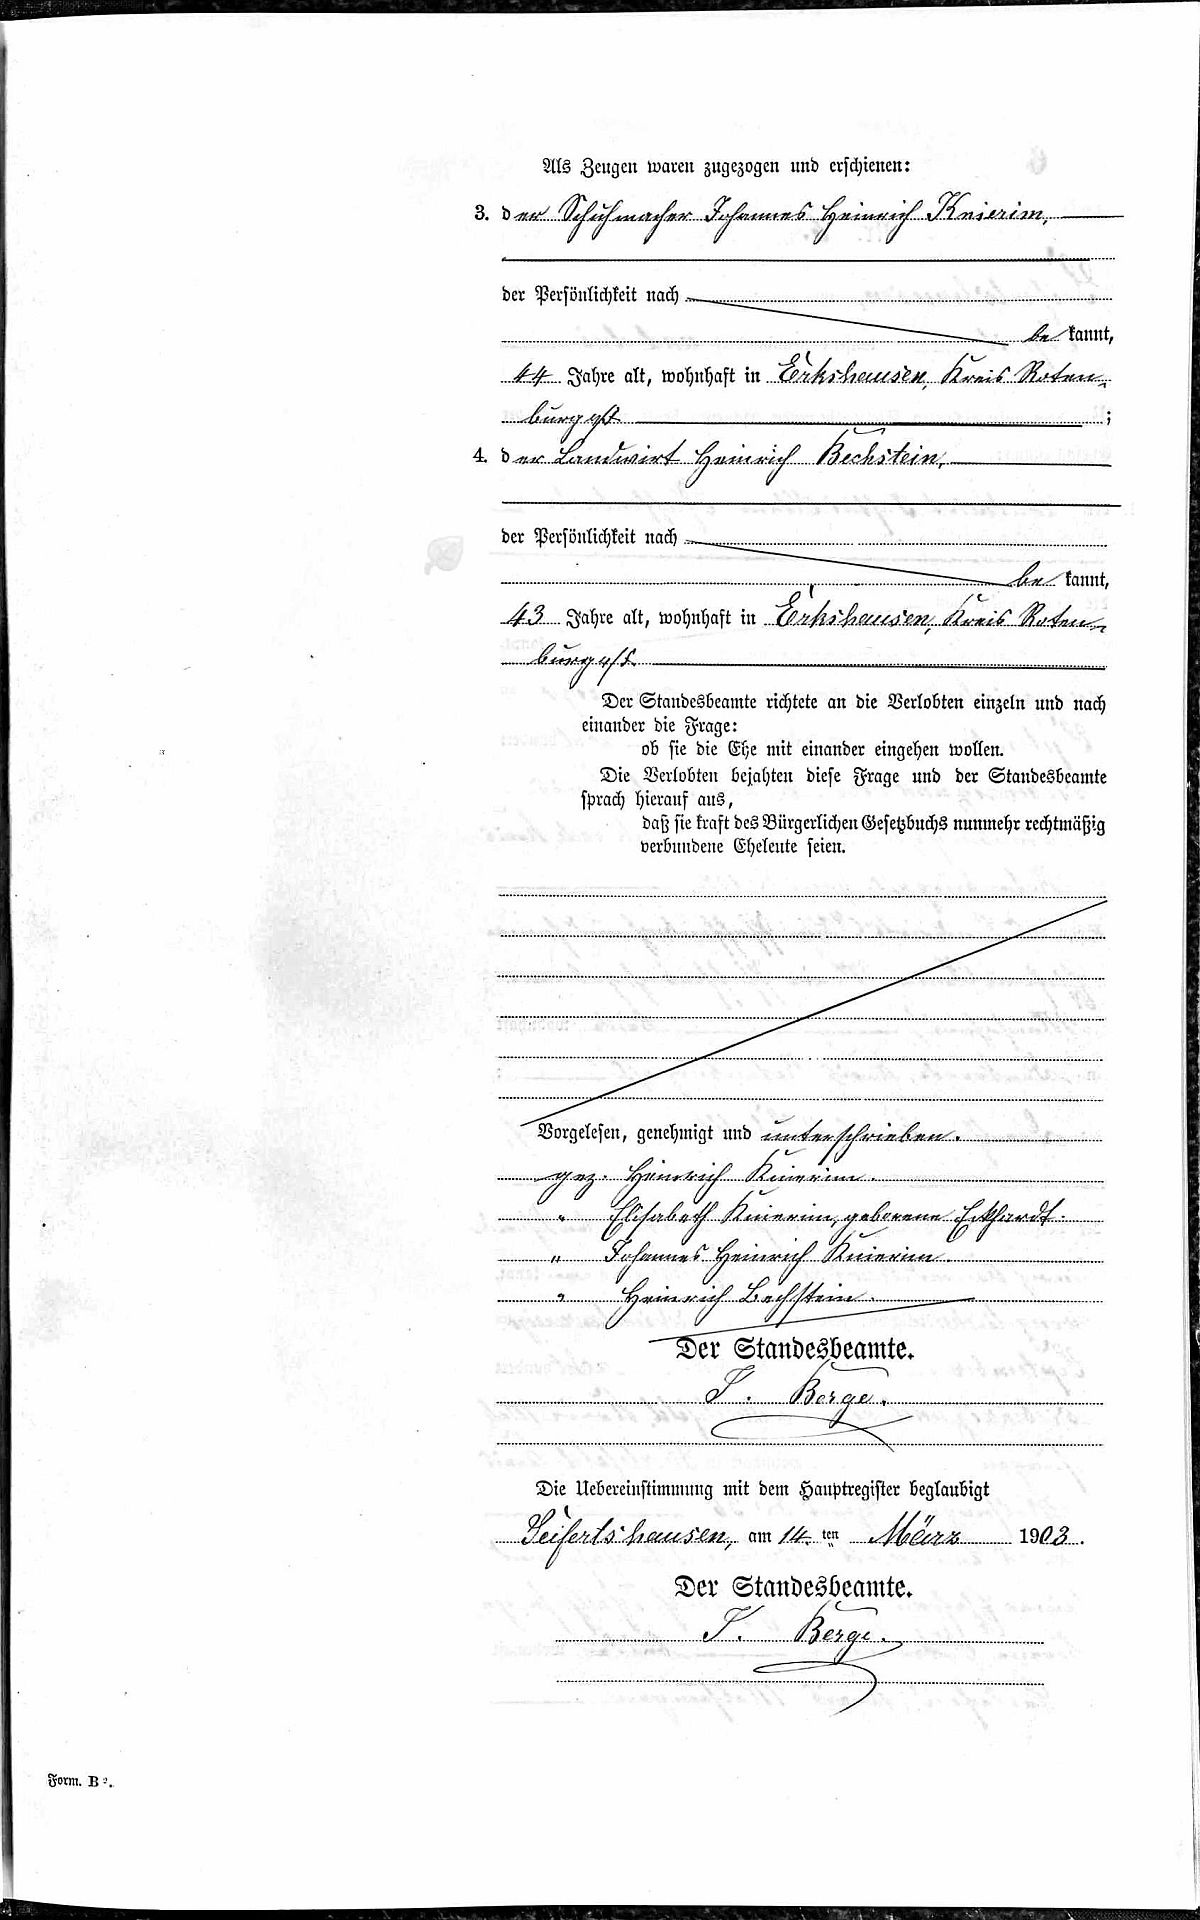 Als Zeugen waren zugezogen und erschienen:
3. der Schuhmacher Johannes Heinrich Knierim,
der Persönlichkeit nach
be kannt,
44 Jahre alt, wohnhaft in Erkshausen, Kreis Roten-
burg a/F ;
4. der Landwirt Heinrich Bechstein,
der Persönlichkeit nach
be kannt,
43 Jahre alt, wohnhaft in Erkshausen, Kreis Roten-
burg a/F.
Der Standesbeamte richtete an die Verlobten einzeln und nach
einander die Frage:
ob sie die Ehe mit einander eingehen wollen.
Die Verlobten bejahten diese Frage und der Standesbeamte
sprach hierauf aus,
daß sie kraft des Bürgerlichen Gesetzbuchs nunmehr rechtmäßig
verbundene Eheleute seien.
Vorgelesen, genehmigt und unterschrieben.
gez. Heinrich Knierim.
" Elisabeth Knierim, geborene Eckhardt.
" Johannes Heinrich Knierim.
" Heinrich Bechstein.
Der Standesbeamte.
Berge.
Die Uebereinstimmung mit dem Hauptregister beglaubigt
Seifertshausen, am 14. ten März 1903.
Der Standesbeamte.
Berge.
Form. B 2.